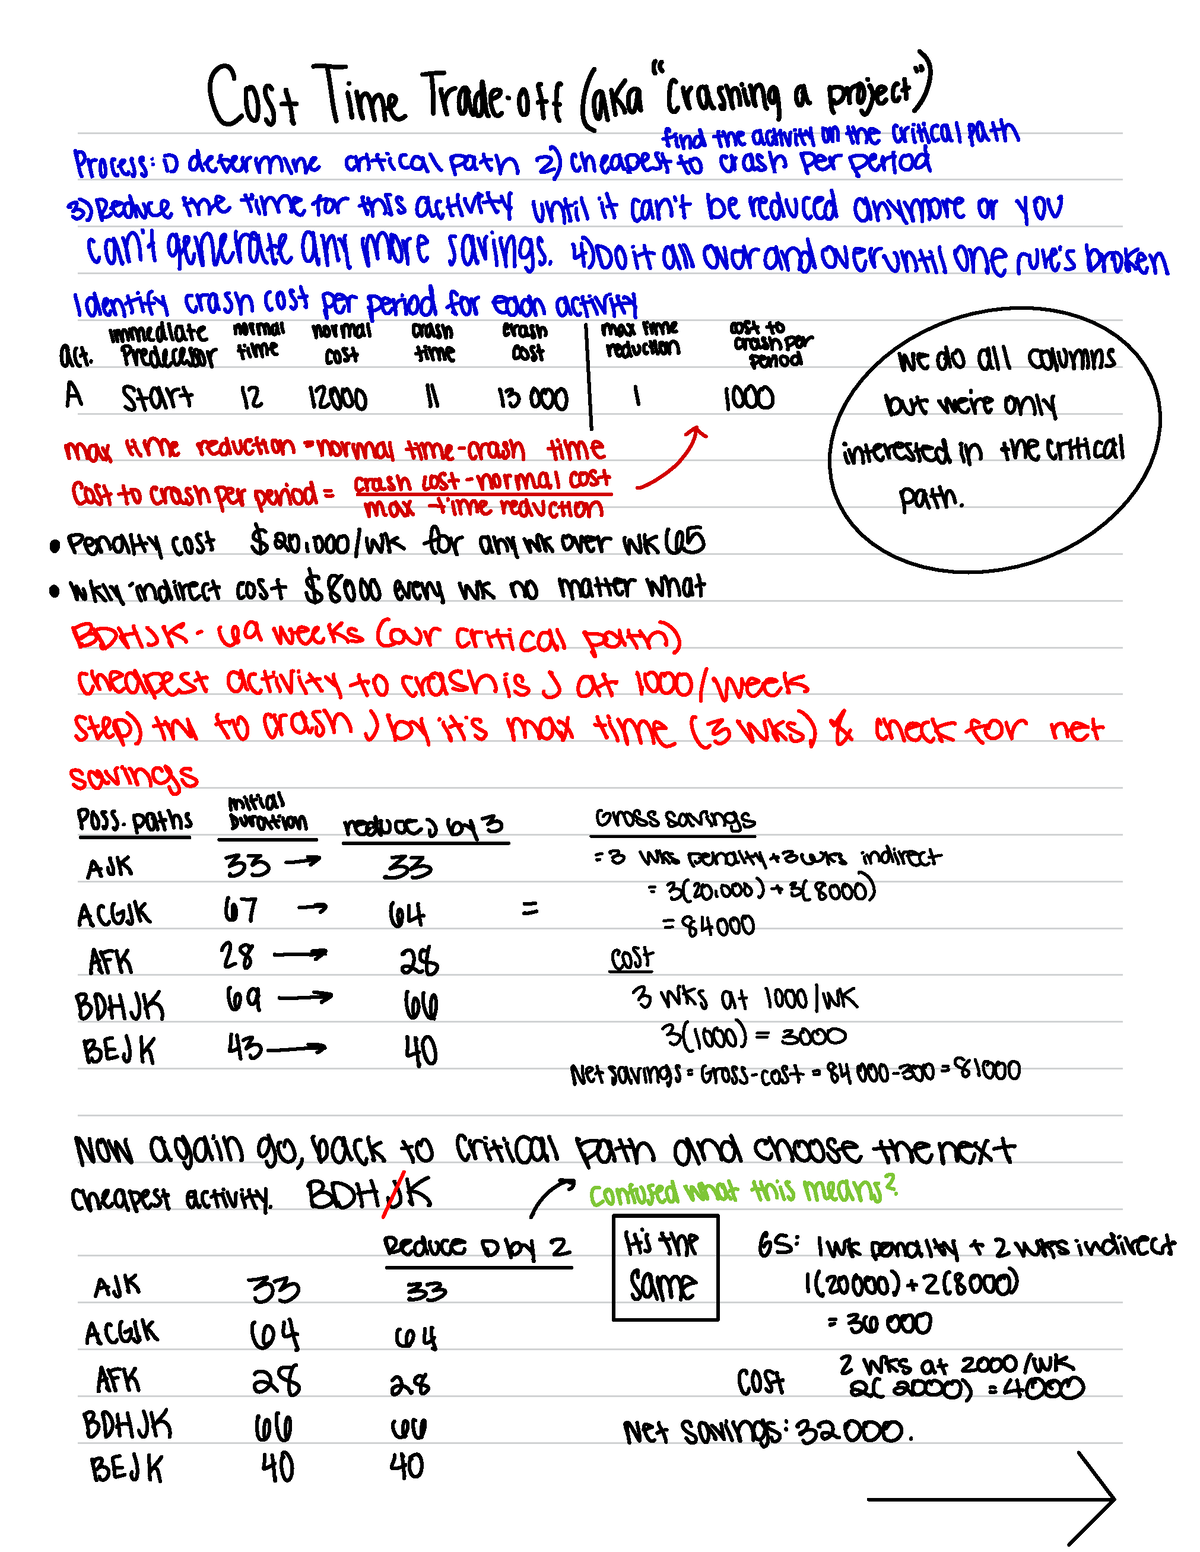 Cost Time Trade-off (aka "Crashing a project")
find the activity on the critical path
Process: 1) determine critical path 2) cheapest to crash per period
3) Reduce the time for this activity until it can't be reduced anymore or you
can't generate any more savings. 4) Do it all over and over until one rule's broken
Identify crash cost per period for each activity
act. immediate Predecesor normal time normal cost crash time crash cost max time reduction cost to crash per period
A Start 12 12000 11 13 000 1 1000
we do all columns
but we're only
interested in the critical
path.
max time reduction = normal time - crash time
Cost to crash per period = crash cost - normal cost
max time reduction
• Penalty cost $20,000/wk for any wk over wk 65
• wkly indirect cost $8000 every wk no matter what
BDHJK - 69 weeks (our critical path)
cheapest activity to crash is J at 1000/week
Step) try to crash J by it's max time (3 wks) & check for net
savings
Poss. paths initial Duration reduce J by 3 Gross savings
AJK 33 → 33 = 3 wks penalty + 3 wks indirect
= 3(20,000) + 3(8000)
ACGJK 67 → 64 = = 84000
AFK 28 → 28 cost
BDHJK 69 → 66 3 wks at 1000/wk
3(1000) = 3000
BEJK 43 → 40
Net savings = Gross - cost = 84 000 - 300 = 81000
Now again go, back to critical path and choose the next
cheapest activity. BDHJK confused what this means?
Reduce D by 2 It's the same GS: 1 wk penalty + 2 wks indirect
AJK 33 33 1(20000) + 2(8000)
= 36 000
ACGJK 64 64
2 wks at 2000/wk
AFK 28 28 cost 2(2000) = 4000
BDHJK 66 66 Net savings: 32000.
BEJK 40 40